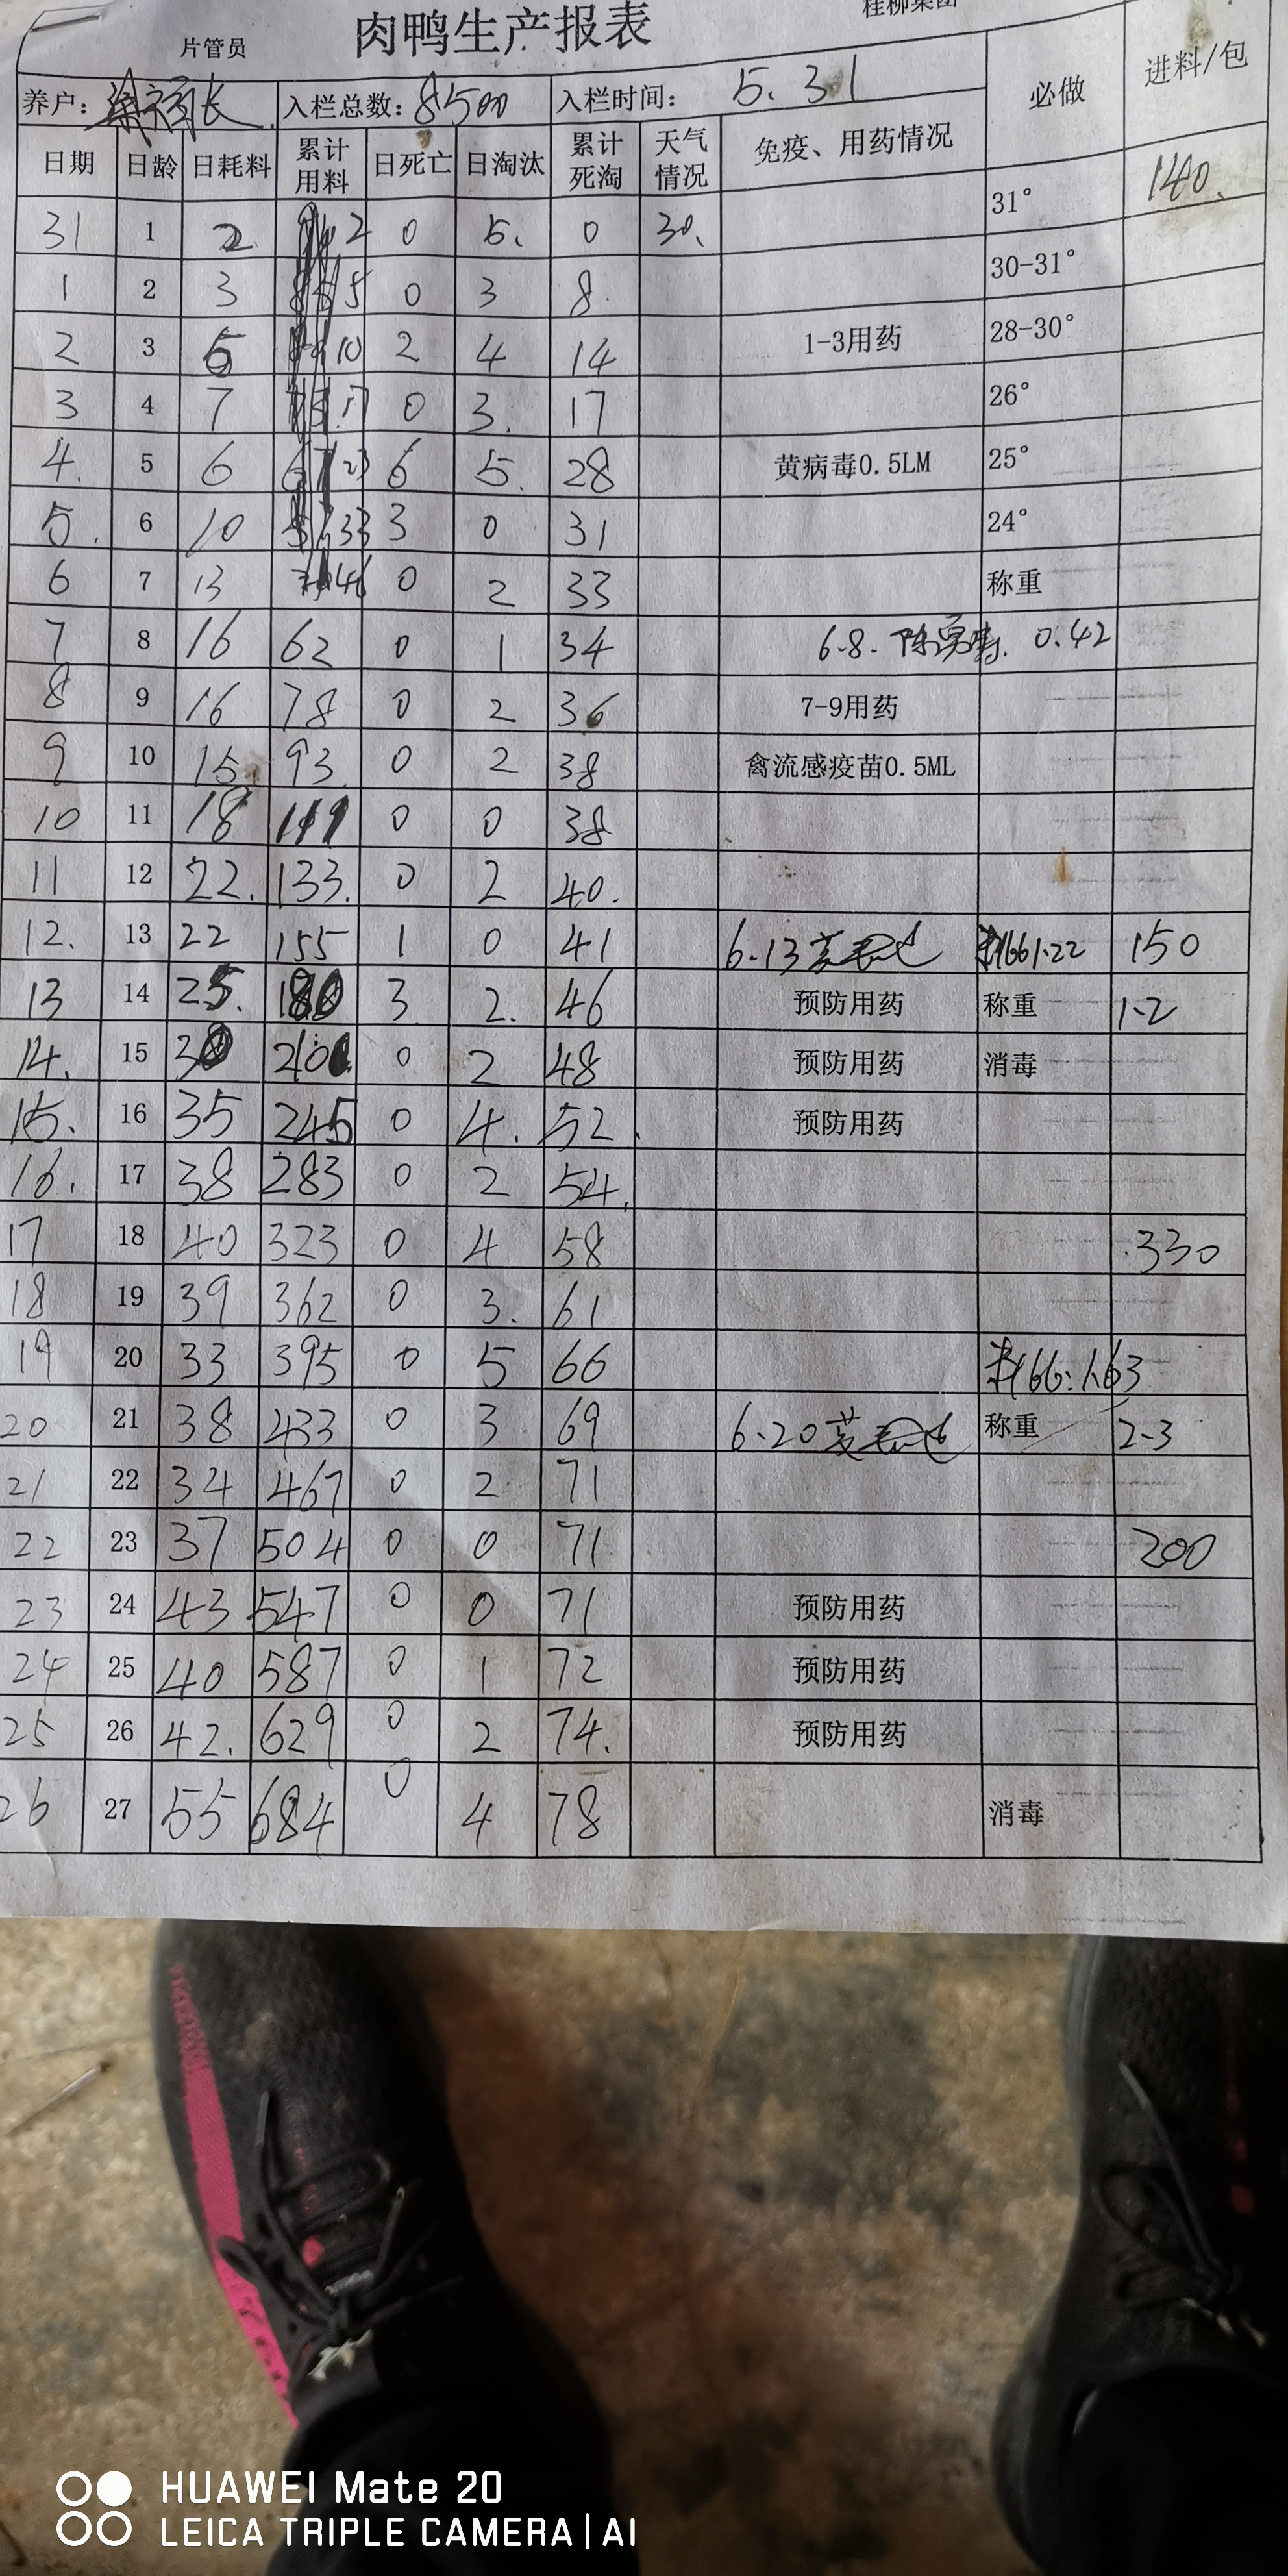 肉鸭生产报表
片管员
养户： 入栏总数：8500 入栏时间：5.31 必做 进料/包
日期 日龄 日耗料 累计用料 日死亡 日淘汰 累计死淘 天气情况 免疫、用药情况 140.
31 1 2 2 0 5. 0 30. 31°
1 2 3 5 0 3 8. 30-31°
2 3 5 10 2 4 14 1-3用药 28-30°
3 4 7 17 0 3. 17 26°
4. 5 6 23 6 5. 28 黄病毒0.5LM 25°
5. 6 10 33 3 0 31 24°
6 7 13 46 0 2 33 称重
7 8 16 62 0 1 34 6.8. 0.42
8 9 16 78 0 2 36 7-9用药
9 10 15 93 0 2 38 禽流感疫苗0.5ML
10 11 18 111 0 0 38
11 12 22. 133. 0 2 40.
12. 13 22 155 1 0 41 6.13 150
13 14 25. 180 3 2. 46 预防用药 称重 1.2
14. 15 30 210 0 2 48 预防用药 消毒
15. 16 35 245 0 4. 52. 预防用药
16. 17 38 283 0 2 54.
17 18 40 323 0 4 58 330
18 19 39 362 0 3. 61
19 20 33 395 0 5 66
20 21 38 433 0 3 69 6.20 称重 2.3
21 22 34 467 0 2 71
22 23 37 504 0 0 71 200
23 24 43 547 0 0 71 预防用药
24 25 40 587 0 1 72 预防用药
25 26 42. 629 0 2 74. 预防用药
26 27 55 684 0 4 78 消毒
HUAWEI Mate 20
LEICA TRIPLE CAMERA | AI